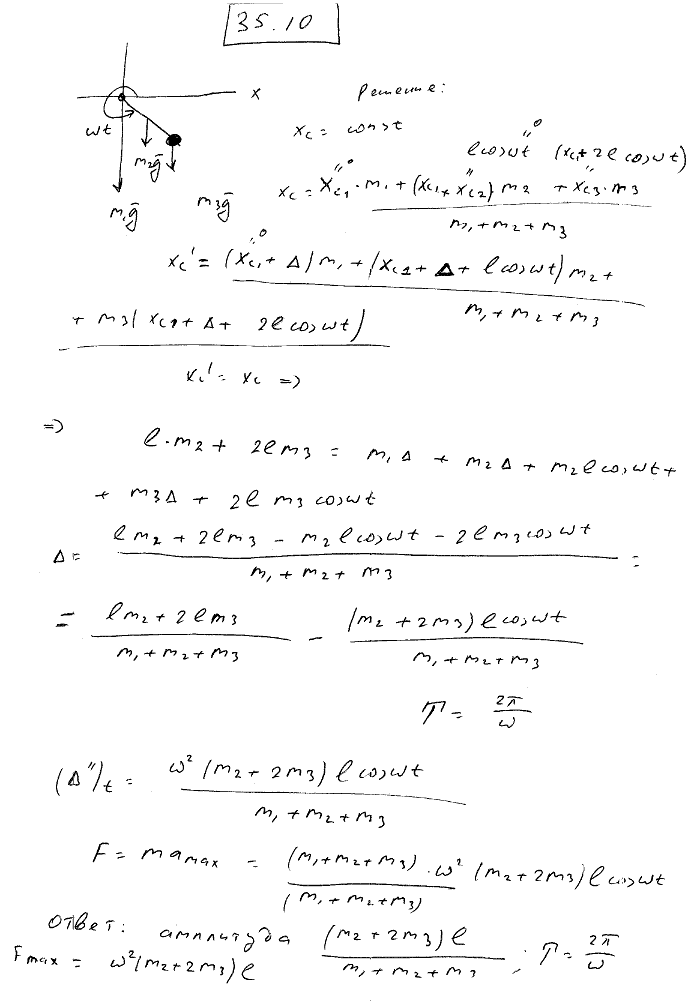 35.10
x
Решение:
ωt
x_c = const
m₂g̅
m₁g̅
m₃g̅
0 l cos ωt (x_c1 + 2l cos ωt)
x_c = (x_c1 · m₁ + (x_c1 + x_c2) m₂ + x_c3 · m₃) / (m₁ + m₂ + m₃)
0
x_c' = ((x_c1 + Δ) m₁ + (x_c1 + Δ + l cos ωt) m₂ +
+ m₃ (x_c1 + Δ + 2l cos ωt)) / (m₁ + m₂ + m₃)
x_c' = x_c =>
=> l · m₂ + 2l m₃ = m₁Δ + m₂Δ + m₂ l cos ωt +
+ m₃Δ + 2l m₃ cos ωt
Δ = (l m₂ + 2l m₃ - m₂ l cos ωt - 2l m₃ cos ωt) / (m₁ + m₂ + m₃) =
= (l m₂ + 2l m₃) / (m₁ + m₂ + m₃) - ((m₂ + 2m₃) l cos ωt) / (m₁ + m₂ + m₃)
T = 2π / ω
(Δ'')_t = ω² (m₂ + 2m₃) l cos ωt / (m₁ + m₂ + m₃)
F = m a_max = (m₁ + m₂ + m₃) · ω² (m₂ + 2m₃) l cos ωt / (m₁ + m₂ + m₃)
Ответ: амплитуда (m₂ + 2m₃) l / (m₁ + m₂ + m₃) ; T = 2π / ω
F max = ω² (m₂ + 2m₃) l